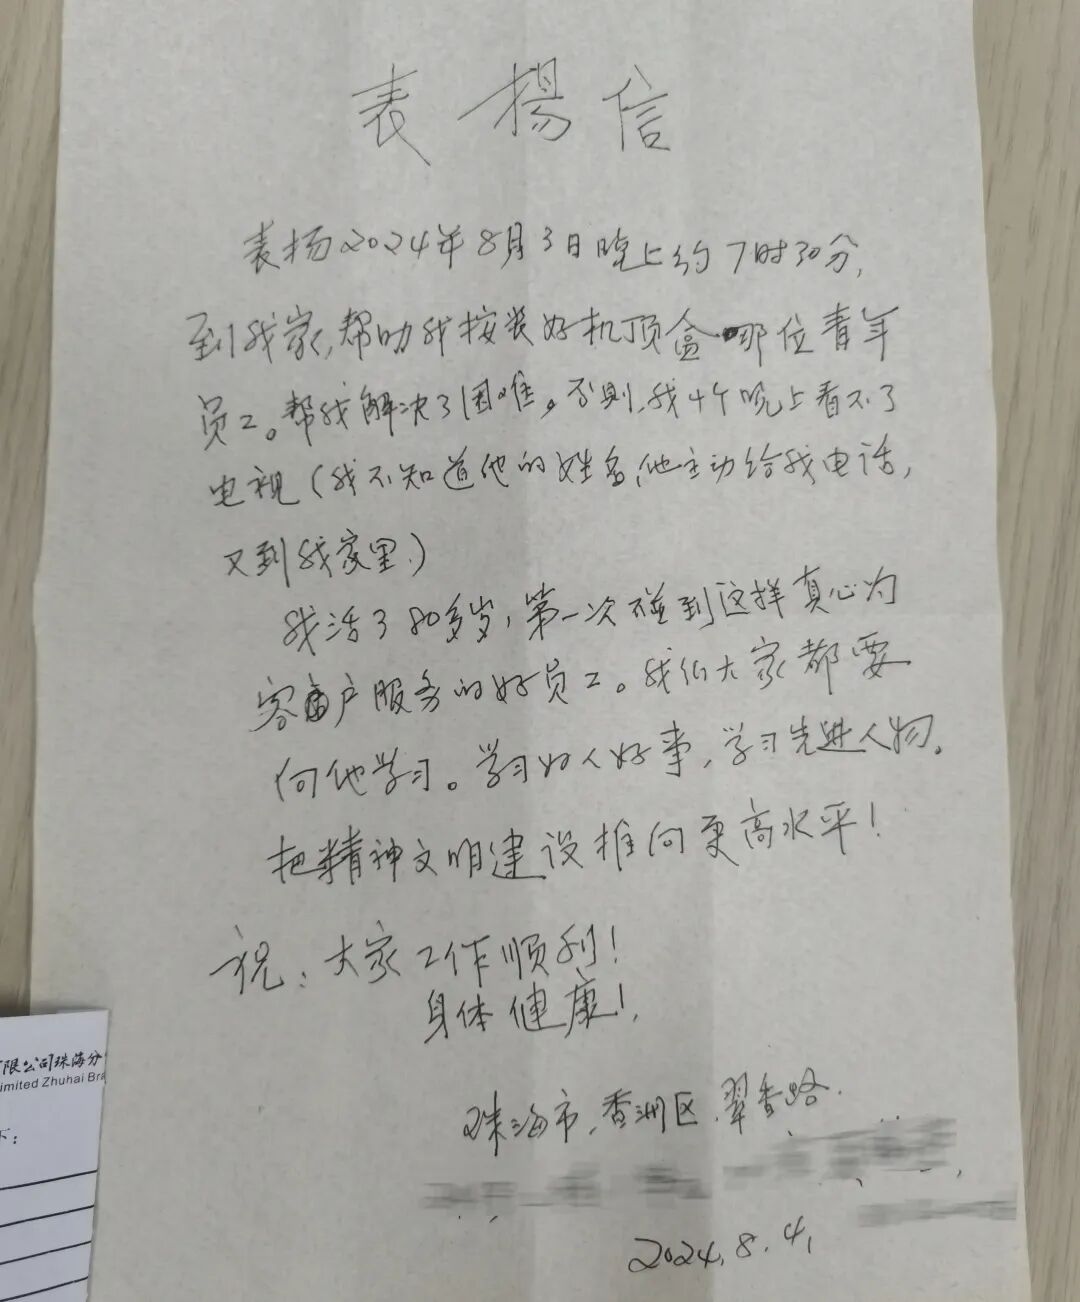 表揚信
表扬2024年8月3日晚上约7时30分,
到我家,帮助我按装好机顶盒哪位青年
员工。帮我解决了困难。否则,我4个晚上看不了
电视(我不知道他的姓名,他主动给我电话,
又到我家里.)
我活了80多岁,第一次碰到这样真心为
客户服务的好员工。我们大家都要
向他学习。学习好人好事,学习先进人物。
把精神文明建设推向更高水平!
祝:大家工作顺利!
身体健康!
珠海市,香洲区,翠香路.
2024.8.4,
有限公司珠海分
imited Zhuhai Bra